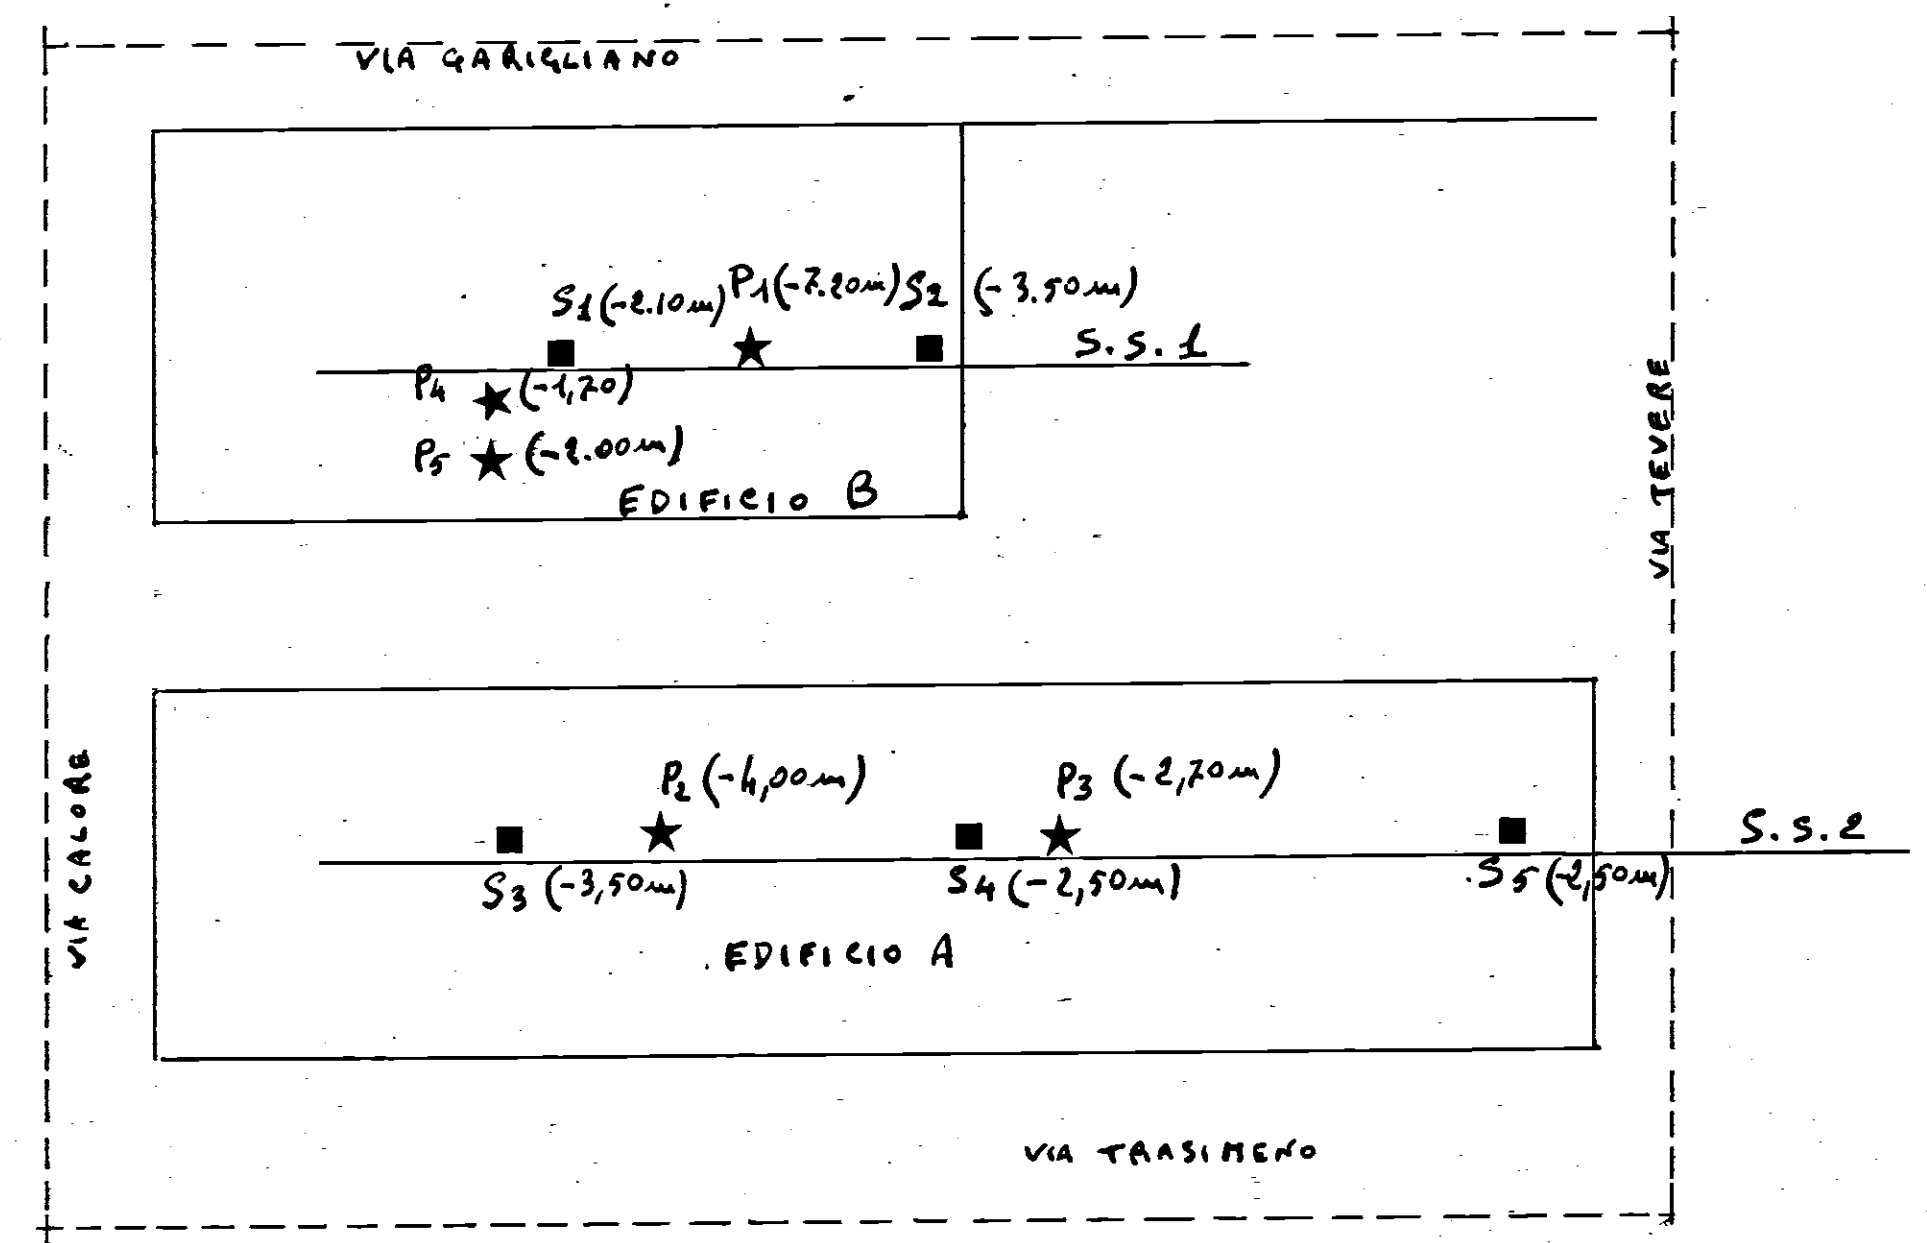 VIA GARIGLIANO
S1 (-2.10m) P1 (-7.20m) S2 (-3.50m)
S.S.1
P4 (-1,70)
P5 (-2.00m)
EDIFICIO B
VIA TEVERE
VIA CALORE
P2 (-4,00m) P3 (-2,70m)
S.S.2
S3 (-3,50m) S4 (-2,50m) S5 (-2,50m)
EDIFICIO A
VIA TRASIMENO